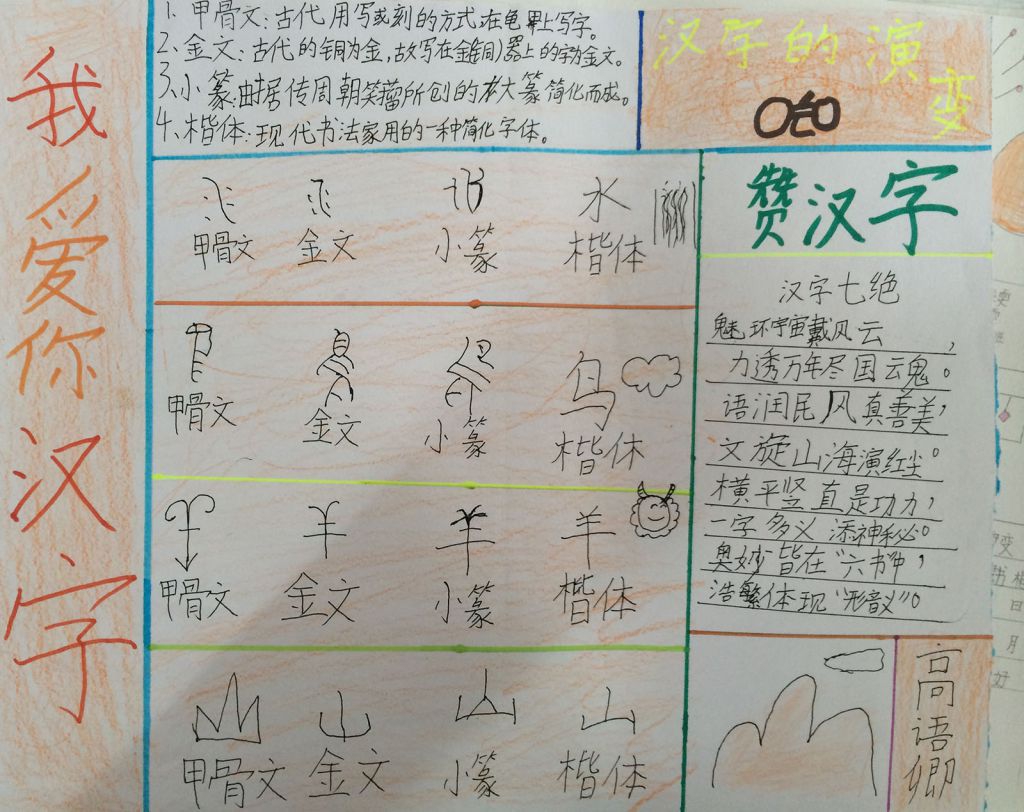 我爱你汉字
1、甲骨文:古代用写或刻的方式,在龟骨上写字。
2、金文:古代的铜为金,故写在金(铜)器上的字为金文。
3、小篆:由据传周朝笑籀所创的大篆简化而成。
4、楷体:现代书法家用的一种简化字体。
汉字的演变
水
甲骨文 金文 小篆 楷体
鸟
甲骨文 金文 小篆 楷体
羊
甲骨文 金文 小篆 楷体
山
甲骨文 金文 小篆 楷体
赞汉字
汉字七绝
魅环宇宙戴风云,
力透万年尽国云魂。
语润民风真善美,
文旋山海演红尘。
横平竖直是功力,
一字多义添神秘。
奥妙皆在“六书”中,
浩繁体现“形音义”。
高语卿